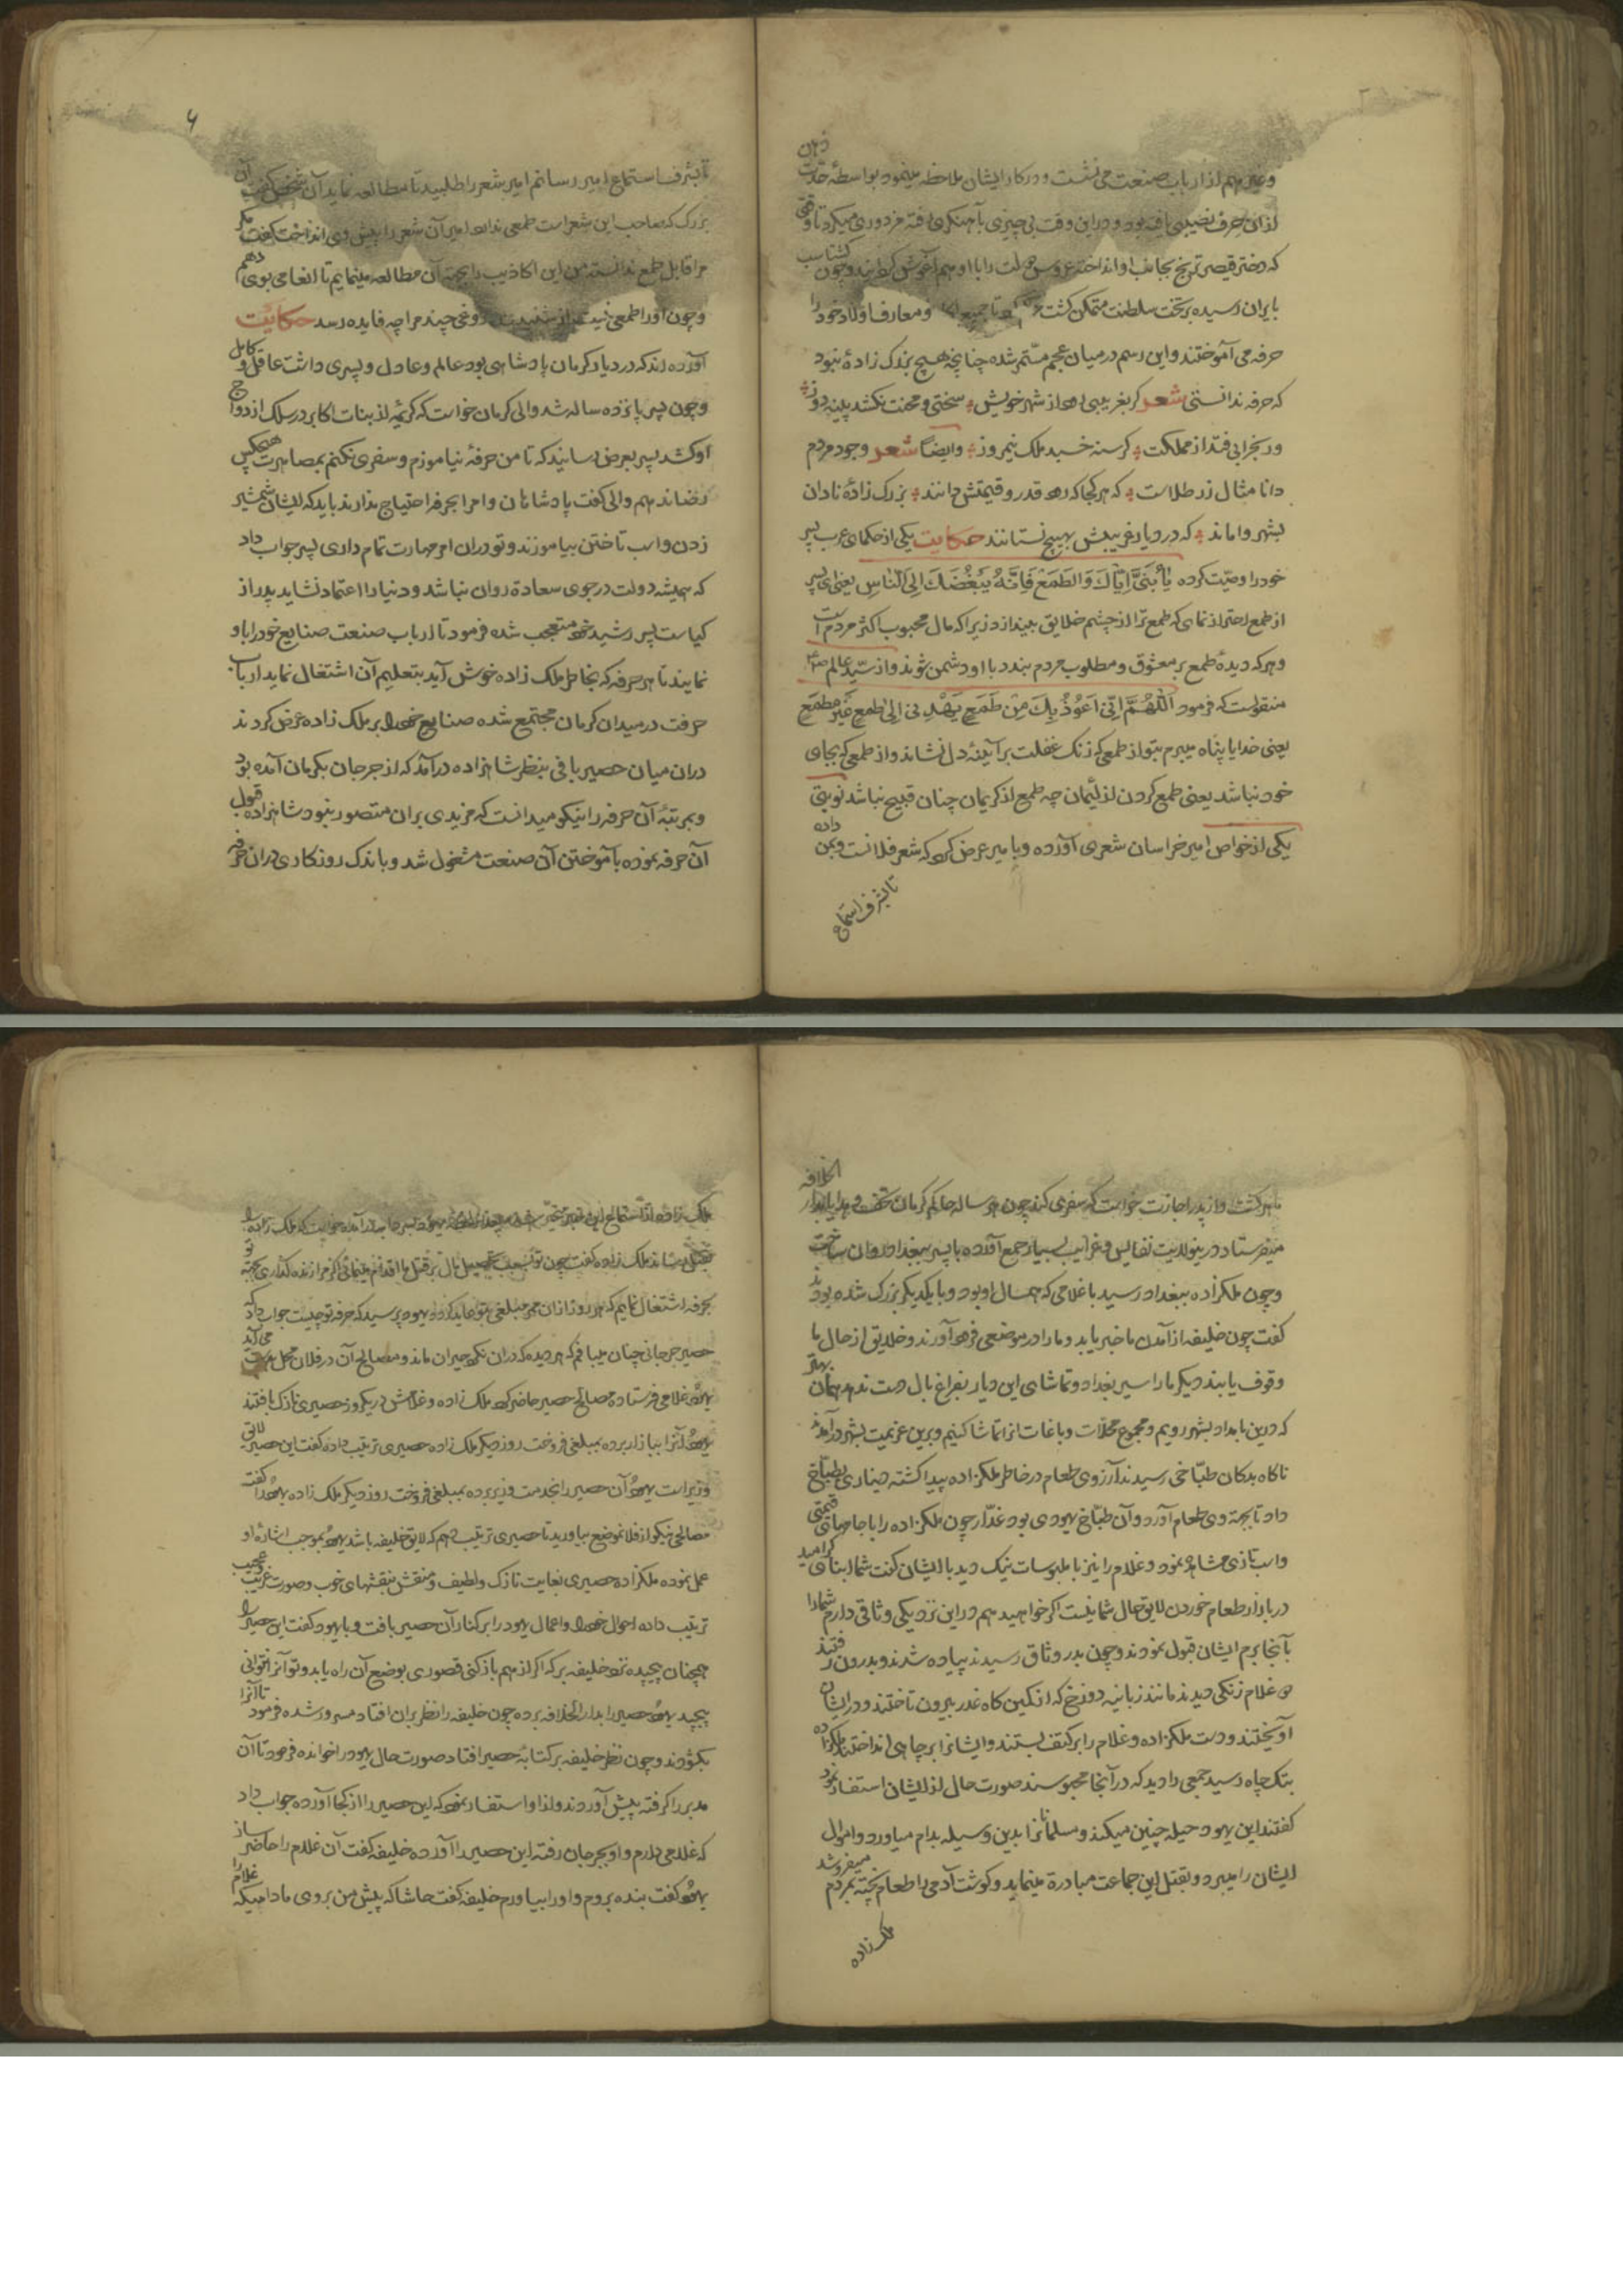 وغیرهم از ارباب صنعت می نشست و در کار ایشان ملاحظه مینمود بواسطهٔ حدّت ذهن
از ان حرف نصیبی یافته بود و دراین وقت بی چیزی بآهنگری رفته مزدوری میکرد تا وقتی
که دختر قیصر ترنج بجانب او انداخته عروس دولت را با او هم آغوش کردانید و چون کشتاسب
بایران رسیده بر تخت سلطنت متمکن کشت و معارف اولاد خود را
حرفه می آموختند و این رسم در میان عجم مستمر شده چنانچه هیچ بزرک زادهٔ نبود
که حرفه ندانستی شعر کر بغریبی رود از شهر خویش سختی و محنت نکشد پینه دوز
ور بخرابی فتد از مملکت کرسنه خسبد ملک نیمروز وایضا شعر وجود مردم
دانا مثال زر طلاست که هر کجا که رود قدر و قیمتش دانند بزرک زادهٔ نادان
بشهر واماند که در دیار غریبش بهیچ نستانند حکایت یکی از حکمای عرب پسر
خود را وصیّت کرده یَا بُنَیَّ اِیَّاكَ وَالطَمَعَ فَاِنَّهُ یُبَغِّضُكَ اِلَی النَّاسِ یعنی ای پسر
از طمع احتراز نمای که طمع ترا از چشم خلایق بیندازد زیرا که مال محبوب اکثر مردم است
و هر که دیدهٔ طمع بر معشوق و مطلوب مردم بندد با او دشمن شوند و از سیّد عالم
منقولست که فرمود اَللّٰهُمَّ اِنّی اَعُوْذُ بِكَ مِنْ طَمَعٍ یَهْدِنی اِلی طمع غَیْرِ مطمَعٍ
یعنی خدایا پناه میبرم بتو از طمعی که زنک غفلت بر آیینهٔ دل نشاند و از طمعی که بجای
خود نباشد یعنی طمع کردن از لئیمان چه طمع از کریمان چنان قبیح نباشد نوبتی
یکی از خواص امیر خراسان شعری آورده و بامیر عرض کرد که شعر فلانست و بمن داده
تا بشرف استماع
تا بشرف استماع امیر رسانم امیر شعر را طلبید تا مطالعه نماید آن شخص کفت آن
بزرک که صاحب این شعر است طمعی ندارد امیر آن شعر را پیش وی انداخت کفت مکر
مرا قابل طمع ندانسته من این اکاذیب را بجهة آن مطالعه مینمایم تا انعامی بوی دهم
و چون او را طمعی نیست از شنیدن دروغی چند مرا چه فایده رسد حکایت
آورده اند که در دیار کرمان پادشاهی بود عالم و عادل و پسری داشت عاقل و کامل
و چون پسر پانزده ساله شد والی کرمان خواست که کریمهٔ از بنات اکابر در سلک ازدواج
او کشد پسر بعرض رسانید که تا من حرفهٔ نیاموزم و سفری نکنم بمصاهرت هیچکس
رضا ندهم والی کفت پادشاهان و امرا بحرفه احتیاج ندارند باید که ایشان شمشیر
زدن و اسب تاختن بیاموزند و تو دران امر مهارت تمام داری پسر جواب داد
که همیشه دولت در جوی سعادة روان نباشد و دنیا را اعتماد نشاید پدر از
کیاست پسر رشید خود متعجب شده فرمود تا ارباب صنعت صنایع خود را باو
نمایند تا هر حرفه که بخاطر ملک زاده خوش آید بتعلیم آن اشتغال نماید ارباب
حرفت در میدان کرمان مجتمع شده صنایع خود را بر ملک زاده عرض کردند
دران میان حصیر بافی بنظر شاهزاده درآمد که از جرجان بکرمان آمده بود
و بمرتبهٔ آن حرفه را نیکو میدانست که مزیدی بران متصور نبود شاهزاده قبول
آن حرفه نموده بآموختن آن صنعت مشغول شد و باندک روزکاری دران حرفه
ماهر کشت و از پدر اجازت خواست که سفری کند چون هر ساله حاکم کرمان تحف و هدایا بدار الخلافه
میفرستاد درینولایت نفایس و غرایب بسیار جمع آورده با پسر ببغداد روان ساخت
و چون ملکزاده ببغداد رسید با غلامی که همسال او بود و با یکدیکر بزرک شده بودند
کفت چون خلیفه از آمدن ما خبر یابد و ما را در موضعی فرود آورند و خلایق از حال ما
وقوف یابند دیکر ما را سیر بغداد و تماشای این دیار بفراغ بال دست ندهد همان بهتر
که درین بامداد بشهر رویم و مجموع محلّات و باغات انرا تماشا کنیم و برین عزیمت بشهر درآمدند
ناکاه بدکان طبّاخی رسیدند آرزوی طعام در خاطر ملکزاده پیدا کشته دیناری بطبّاخ
داد تا بجهة وی طعام آورد و آن طبّاخ یهودی بود غدّار چون ملکزاده را با جامهای قیمتی
و اسب تازی مشاهده نمود و غلام را نیز با ملبوسات نیک دید با ایشان کفت شما ابنای کرامید
در بازار طعام خوردن لایق حال شما نیست اکر خواهید هم دراین نزدیکی وثاقی دارم شما را
بآنجا برم ایشان قبول نمودند و چون بدر وثاق رسیدند پیاده شدند و بدرون رفتند
دو غلام زنکی دیدند مانند زبانیه دوزخ که از کمین کاه غدر بیرون تاختند و در ایشان
آویختند و دست ملکزاده و غلام را بر کتف بستند و ایشانرا بر چاهی انداختند ملکزاده
بتک چاه رسید جمعی را دید که در آنجا محبوسند صورت حال از ایشان استفسار نمود
کفتند این یهود حیله چنین میکند و مسلمانانرا بدین وسیله بدام میاورد و اموال
ایشان را میبرد و بقتل این جماعت مبادرة مینماید و کوشت آدمی را طعام پخته بمردم میفروشد
ملک زاده
ملک زاده از استماع این خبر متحیر شد
ملک زاده کفت چون تو بجهت تحصیل مال بر قتل ما اقدام مینمائی اکر مرا زنده کذاری بجهة تو
بحرفه اشتغال نمایم که هر روز ازان ممر مبلغی بتو عاید کردد یهود پرسید که حرفه تو چیست جواب داد که
حصیر جرجانی چنان میبافم که هر دیده که دران نکرد حیران ماند و مصالح آن در فلان محل
یهود غلامی فرستاده مصالح حصیر حاضر کرد ملک زاده و غلامش در یکروز حصیری نازک بافتند
یهود آنرا ببازار برده بمبلغی فروخت روز دیکر ملک زاده حصیری ترتیب داده کفت این حصیر لائق
وزیر است یهود آن حصیر را بخدمت وزیر برده بمبلغی فروخت روز دیکر ملک زاده یهود را کفت
مصالحی نیکو از فلانموضع بیاورید تا حصیری ترتیب دهم که لایق خلیفه باشد یهود بموجب اشارهٔ او
عمل نموده ملکزاده حصیری بغایت نازک و لطیف و منقش بنقشهای خوب و صورت غریب و عجیب
ترتیب داده احوال خود و اعمال یهود را بر کنار آن حصیر بافت و با یهود کفت این حصیر را
همچنان پیچیده نزد خلیفه بر که اکر از هم باز کنی قصوری بوضع آن راه یابد و تو آنرا نتوانی
پیچید یهود حصیر را بدار الخلافه برده چون خلیفه را نظر بران افتاد مسرور شده فرمود تا آنرا
بکشودند و چون نظر خلیفه بر کتابهٔ حصیر افتاد صورت حال یهود را خوانده فرمود تا آن
مدبر را کرفته پیش آوردند و ازاو استفسار نمود که این حصیر را از کجا آورده جواب داد
که غلامی دارم و او بجرجان رفته این حصیر را آورده خلیفه کفت آن غلام را حاضر ساز
یهود کفت بنده بروم و او را بیاورم خلیفه کفت حاشا که پیش من بروی مادامیکه غلام را